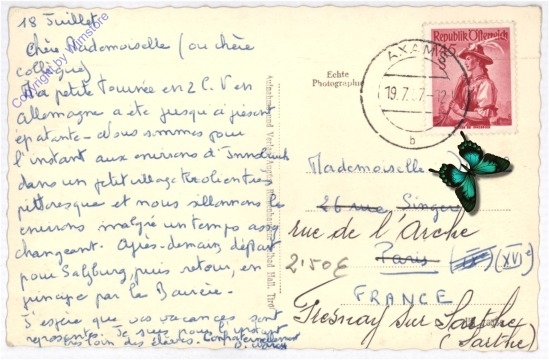 18 Juillet
Chère Mademoiselle (ou chère
collègue)
Ma petite tournée en 2 C.V en
Allemagne a été jusqu'à présent
épatante - Nous sommes pour
l'instant aux environs d'Innsbruck
dans un petit village tyrolien très
pittoresque et nous sillonnons les
environs malgré un temps assez
changeant. Après-demain, départ
pour Salzburg, puis retour, en
principe par la Bavière.
J'espère que vos vacances sont
reposantes. Je suis pour l'instant
très loin des élèves. Confraternellement
Copyright by Wimstore
Echte
Photographie
Republik Österreich
AXAMS
19.7.57
b
Mademoiselle
26 rue Singer
rue de l'Arche
Paris (XVIe)
2.50€
FRANCE
Fresnay sur Sarthe
(Sarthe)